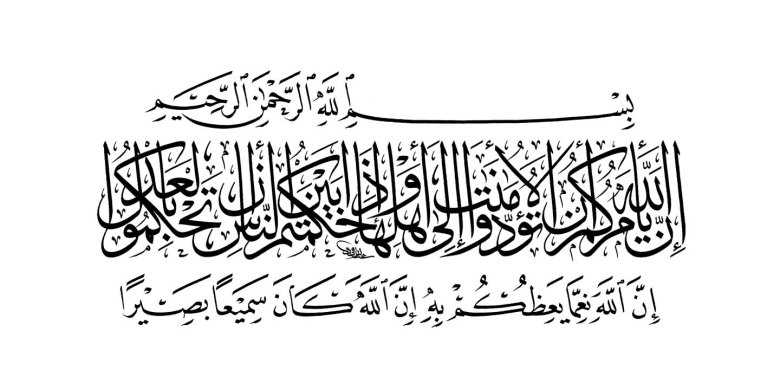 بِسْمِ ٱللَّهِ ٱلرَّحْمَٰنِ ٱلرَّحِيمِ
إِنَّ ٱللَّهَ يَأْمُرُكُمْ أَن تُؤَدُّوا۟ ٱلْأَمَٰنَٰتِ إِلَىٰٓ أَهْلِهَا وَإِذَا حَكَمْتُم بَيْنَ ٱلنَّاسِ أَن تَحْكُمُوا۟ بِٱلْعَدْلِ
إِنَّ ٱللَّهَ نِعِمَّا يَعِظُكُم بِهِۦٓ إِنَّ ٱللَّهَ كَانَ سَمِيعًۢا بَصِيرًا